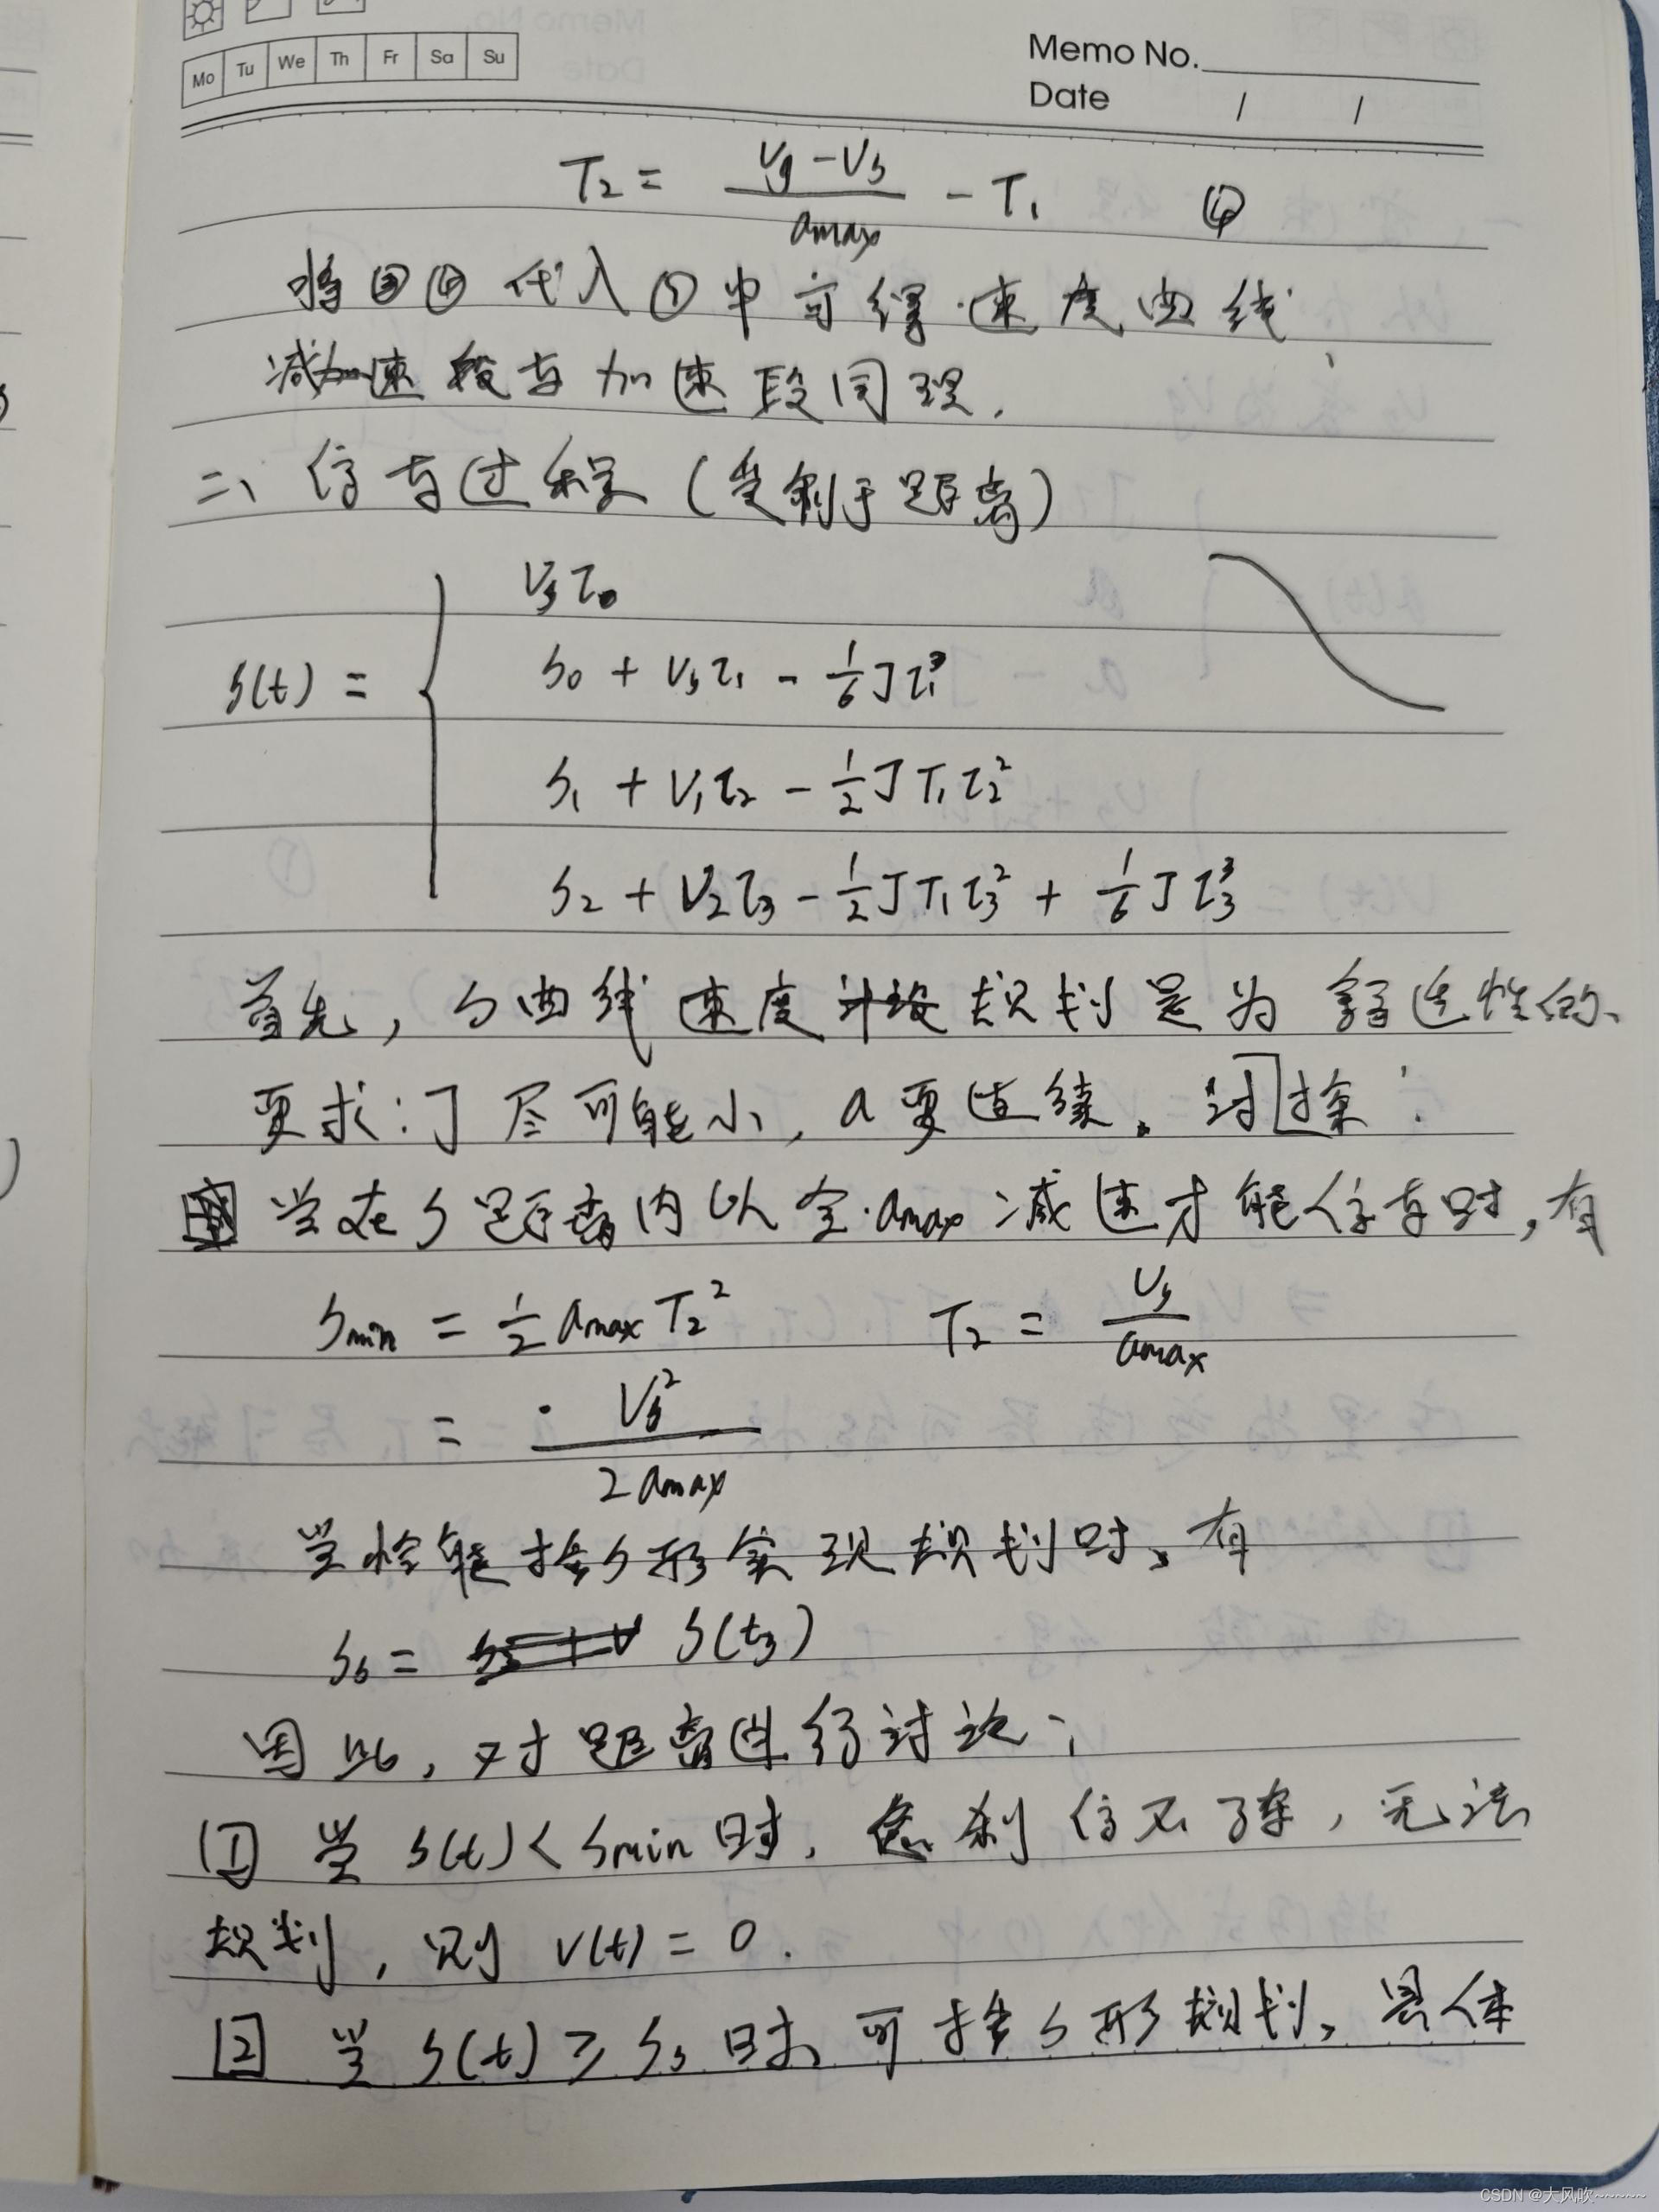 Mo Tu We Th Fr Sa Su
Memo No.
Date / /
T₂ = (Vg - Vs)/amax - T₁ ④
将③④代入①中可得速度曲线,
减速段与加速段同理.
二、停车过程(受制于距离)
s(t) = {
Vsτ₀
s₀ + Vsτ₁ - 1/6 Jτ₁³
s₁ + V₁τ₂ - 1/2 JT₁τ₂²
s₂ + V₂τ₃ - 1/2 JT₁τ₃² + 1/6 Jτ₃³
首先, S曲线速度规划是为舒适性的、
要求: J尽可能小, a要连续。讨探:
当在S距离内以全amax减速才能停车时, 有
Smin = 1/2 amax T₂² T₂ = Vs/amax
= Vs²/(2amax)
当恰能按S形实现规划时, 有
Ss = S(t₃)
因此, 对距离进行讨论:
1 当 s(t) < smin 时, 急刹停不了车, 无法
规划, 则 v(t) = 0.
2 当 s(t) ≥ Ss 时, 可按S形规划, 具体
CSDN @大风吹~~~~~